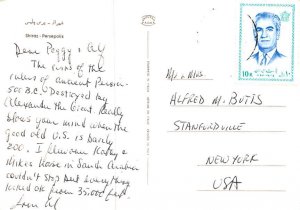 Shiraz - Persepolis
Dear Peggy & Al
The ruins of the
rulers of ancient Persia -
500 B.C. Destroyed by
Alexander the Giant. Really
blows your mind when the
good old U.S. is barely
200. I flew over Kathy &
Mikes House in Saudi Arabia
couldn't stop but everything
looked OK from 35,000 feet
Mr. & Mrs.
ALFRED M. BUTTS
STANFORDVILLE
NEW YORK
USA